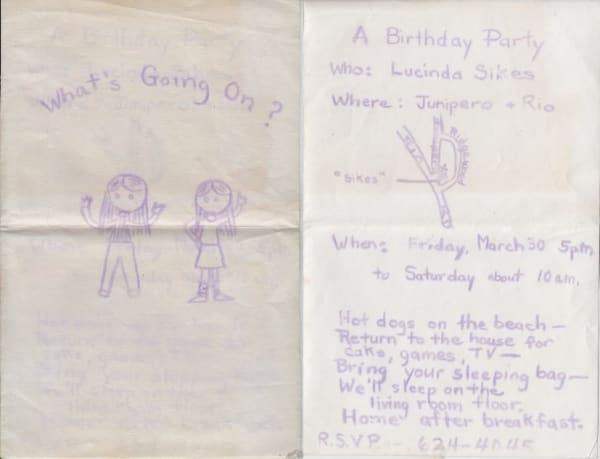 What's Going On?
A Birthday Party
Who: Lucinda Sikes
Where: Junipero + Rio
"Sikes"
When: Friday, March 30 5pm
to Saturday about 10 am.
Hot dogs on the beach —
Return to the house for
cake, games, TV —
Bring your sleeping bag —
We'll sleep on the
living room floor.
Home after breakfast.
R.S.V.P. — 624-4045